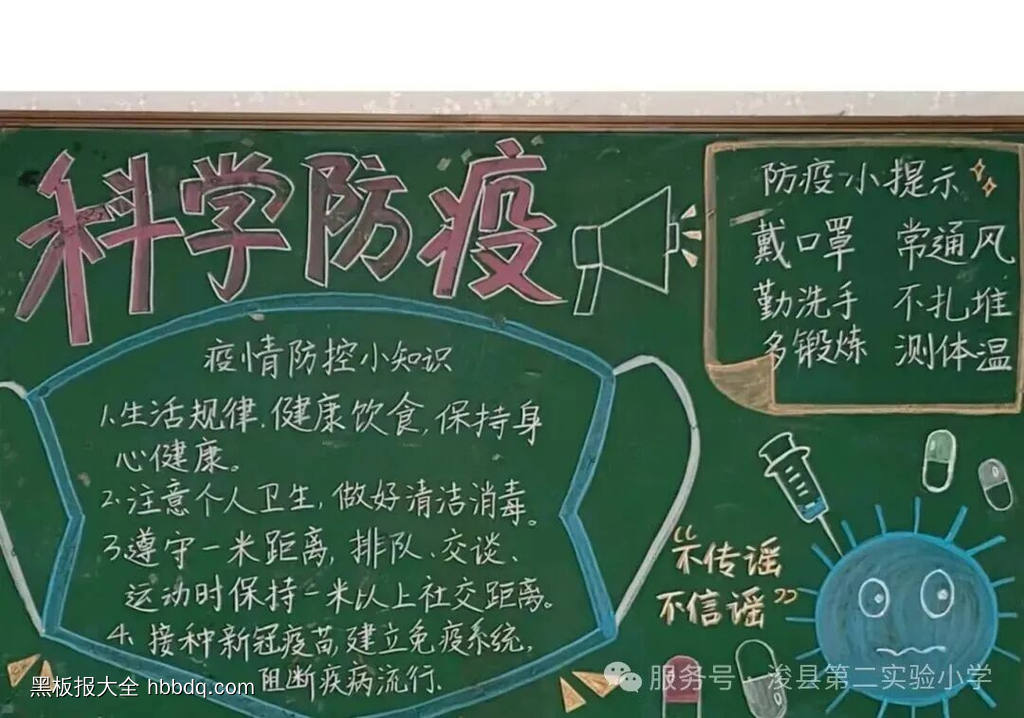 科学防疫
疫情防控小知识
1.生活规律.健康饮食,保持身
心健康。
2.注意个人卫生,做好清洁消毒。
3遵守一米距离,排队、交谈、
运动时保持一米以上社交距离。
4.接种新冠疫苗,建立免疫系统,
阻断疾病流行.
防疫小提示
戴口罩 常通风
勤洗手 不扎堆
多锻炼 测体温
“不传谣
不信谣”
黑板报大全 hbbdq.com
服务号·浚县第二实验小学